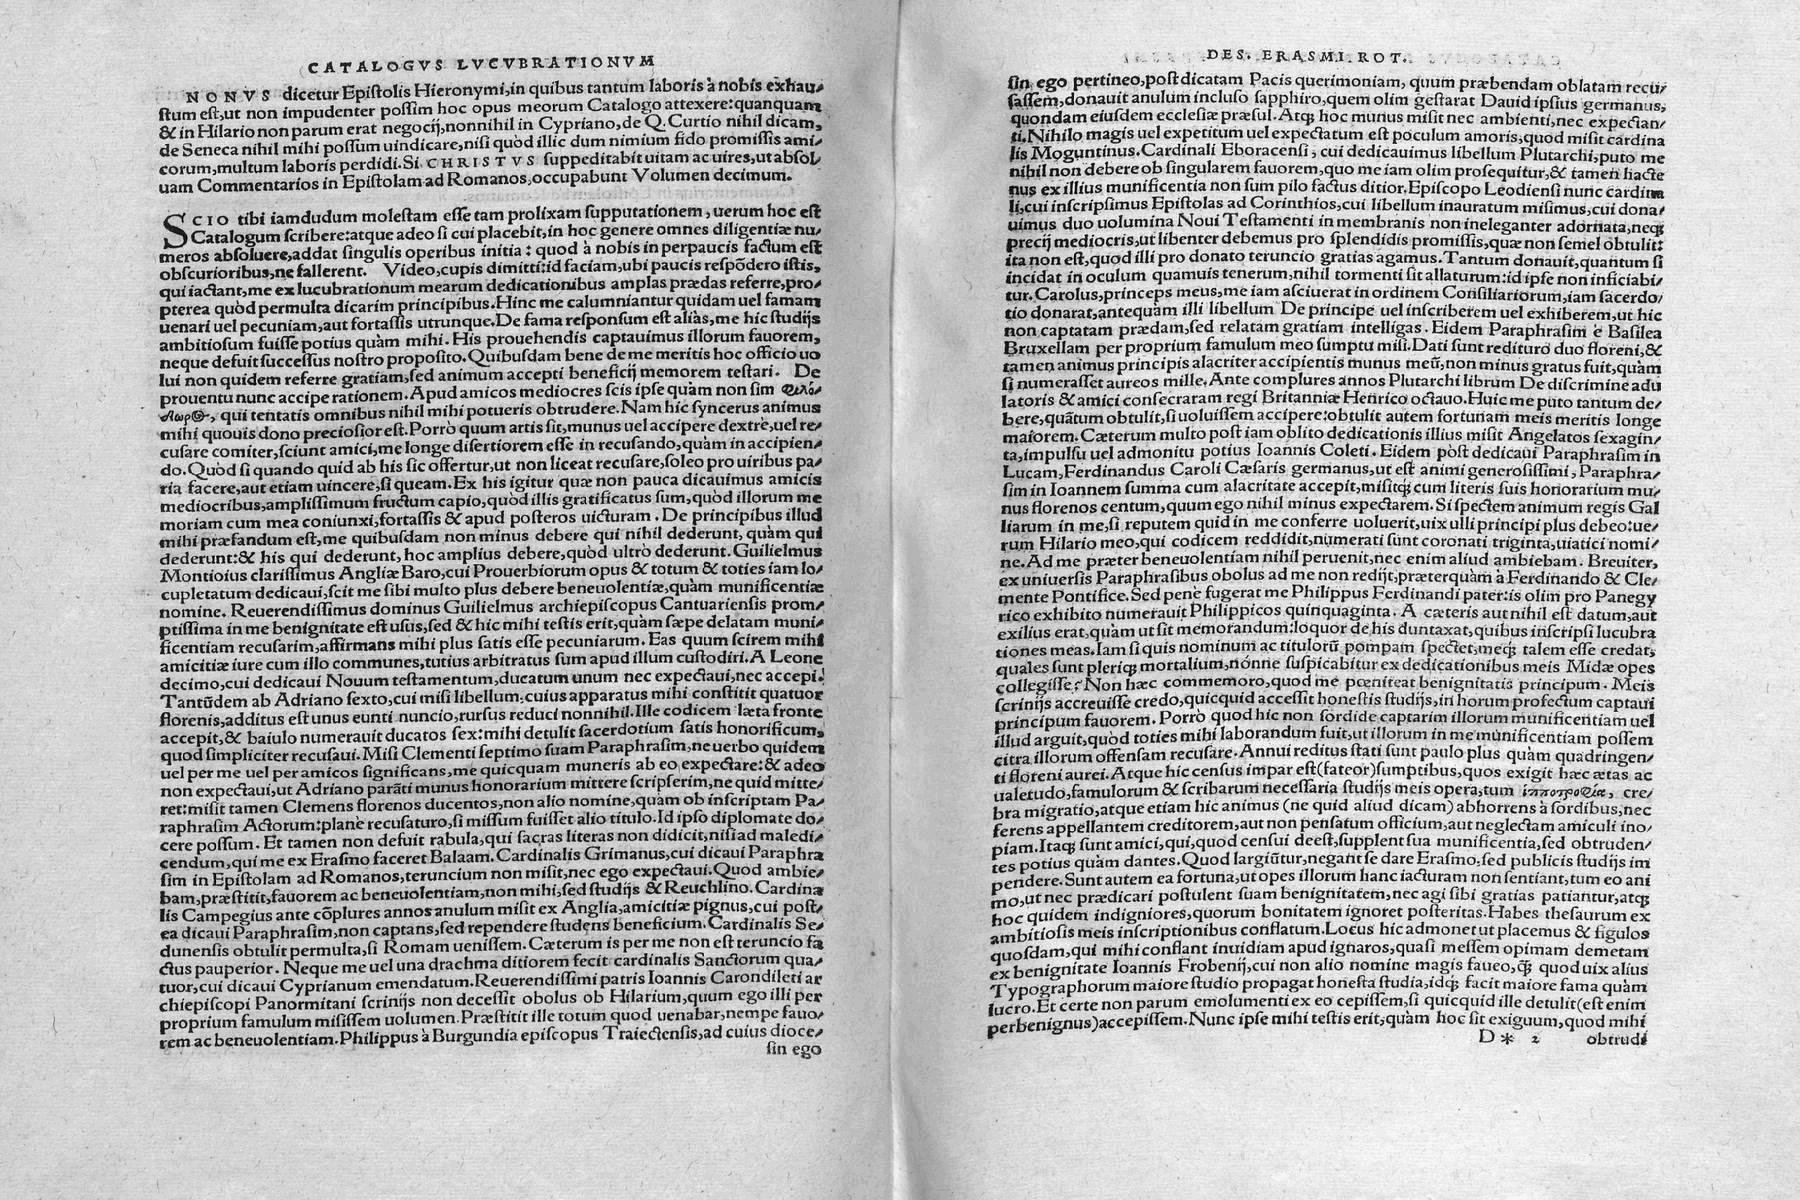 CATALOGVS LVCVBRATIONVM
NONVS dicetur Epistolis Hieronymi,in quibus tantum laboris à nobis exhau-
stum est,ut non impudenter possim hoc opus meorum Catalogo attexere:quanquam
& in Hilario non parum erat negocij,nonnihil in Cypriano,de Q. Curtio nihil dicam,
de Seneca nihil mihi possum uindicare,nisi quòd illic dum nimium fido promissis ami-
corum,multum laboris perdidi. Si CHRISTVS suppeditabit uitam ac uires,ut absol-
uam Commentarios in Epistolam ad Romanos,occupabunt Volumen decimum.
SCIO tibi iamdudum molestam esse tam prolixam supputationem, uerum hoc est
Catalogum scribere:atque adeo si cui placebit,in hoc genere omnes diligentiæ nu-
meros absoluere,addat singulis operibus initia: quod à nobis in perpaucis factum est
obscurioribus,ne fallerent. Video,cupis dimitti:id faciam,ubi paucis respōdero istis,
qui iactant,me ex lucubrationum mearum dedicationibus amplas prædas referre,pro-
pterea quòd permulta dicarim principibus.Hinc me calumniantur quidam uel famam
uenari uel pecuniam,aut fortassis utrunque.De fama responsum est aliàs,me hic studijs
ambitiosum fuisse potius quàm mihi. His prouehendis captauimus illorum fauorem,
neque defuit successus nostro proposito.Quibusdam bene de me meritis hoc officio uo
lui non quidem referre gratiam,sed animum accepti beneficij memorem testari. De
prouentu nunc accipe rationem.Apud amicos mediocres scis ipse quàm non sim φιλό-
δωρος, qui tentatis omnibus nihil mihi potueris obtrudere.Nam hic syncerus animus
mihi quouis dono preciosior est.Porrò quum artis sit,munus uel accipere dextrè,uel re-
cusare comiter,sciunt amici,me longe disertiorem esse in recusando,quàm in accipien-
do.Quòd si quando quid ab his sic offertur,ut non liceat recusare,soleo pro uiribus pa-
ria facere,aut etiam uincere,si queam.Ex his igitur quæ non pauca dicauimus amicis
mediocribus,amplissimum fructum capio,quòd illis gratificatus sum,quòd illorum me
moriam cum mea coniunxi,fortassis & apud posteros uicturam. De principibus illud
mihi præfandum est,me quibusdam non minus debere qui nihil dederunt,quàm qui
dederunt:& his qui dederunt,hoc amplius debere,quòd ultrò dederunt.Guilielmus
Montioius clarissimus Angliæ Baro,cui Prouerbiorum opus & totum & toties iam lo-
cupletatum dedicaui,scit me sibi multo plus debere beneuolentiæ,quàm munificentiæ
nomine. Reuerendissimus dominus Guilielmus archiepiscopus Cantuariensis prom-
ptissima in me benignitate est usus,sed & hic mihi testis erit,quàm sæpe delatam muni-
ficentiam recusarim,affirmans mihi plus satis esse pecuniarum. Eas quum scirem mihi
amicitiæ iure cum illo communes,tutius arbitratus sum apud illum custodiri.A Leone
decimo,cui dedicaui Nouum testamentum,ducatum unum nec expectaui,nec accepi.
Tantūdem ab Adriano sexto,cui misi libellum,cuius apparatus mihi constitit quatuor
florenis,additus est unus eunti nuncio,rursus reduci nonnihil.Ille codicem læta fronte
accepit,& baiulo numerauit ducatos sex:mihi detulit sacerdotium satis honorificum,
quod simpliciter recusaui. Misi Clementi septimo suam Paraphrasim,ne uerbo quidem
uel per me uel per amicos significans,me quicquam muneris ab eo expectare:& adeo
non expectaui,ut Adriano parāti munus honorarium mittere scripserim,ne quid mitte-
ret:misit tamen Clemens florenos ducentos,non alio nomine,quàm ob inscriptam Pa-
raphrasim Actorum:planè recusaturo,si missum fuisset alio titulo.Id ipso diplomate do-
cere possum. Et tamen non defuit rabula,qui sacras literas non didicit,nisi ad maledi-
cendum,qui me ex Erasmo faceret Balaam.Cardinalis Grimanus,cui dicaui Paraphra
sim in Epistolam ad Romanos,teruncium non misit,nec ego expectaui.Quod ambie-
bam,præstitit,fauorem ac beneuolentiam,non mihi,sed studijs & Reuchlino.Cardina
lis Campegius ante cōplures annos anulum misit ex Anglia,amicitiæ pignus,cui post-
ea dicaui Paraphrasim,non captans,sed rependere studens beneficium.Cardinalis Se-
dunensis obtulit permulta,si Romam uenissem. Cæterum is per me non est teruncio fa
ctus pauperior. Neque me uel una drachma ditiorem fecit cardinalis Sanctorum qua-
tuor,cui dicaui Cyprianum emendatum.Reuerendissimi patris Ioannis Carondileti ar
chiepiscopi Panormitani scrinijs non decessit obolus ob Hilarium,quum ego illi per
proprium famulum misissem uolumen.Præstitit ille totum quod uenabar,nempe fauo-
rem ac beneuolentiam.Philippus à Burgundia episcopus Traiectensis,ad cuius dioce-
sin ego
DES. ERASMI ROT.
sin ego pertineo,post dicatam Pacis querimoniam, quum præbendam oblatam recu-
sassem,donauit anulum incluso sapphiro,quem olim gestarat Dauid ipsius germanus,
quondam eiusdem ecclesiæ præsul. Atqȝ hoc munus misit nec ambienti,nec expectan-
ti.Nihilo magis uel expetitum uel expectatum est poculum amoris,quod misit cardina
lis Moguntinus.Cardinali Eboracensi, cui dedicauimus libellum Plutarchi,puto me
nihil non debere ob singularem fauorem,quo me iam olim prosequitur,& tamen hacte
nus ex illius munificentia non sum pilo factus ditior.Episcopo Leodiensi nunc cardina
li,cui inscripsimus Epistolas ad Corinthios,cui libellum inauratum misimus,cui dona-
uimus duo uolumina Noui Testamenti in membranis non ineleganter adornata,neqȝ
precij mediocris,ut libenter debemus pro splendidis promissis,quæ non semel obtulit:
ita non est,quod illi pro donato teruncio gratias agamus.Tantum donauit,quantum si
incidat in oculum quamuis tenerum,nihil tormenti sit allaturum:id ipse non inficiabi-
tur.Carolus,princeps meus,me iam asciuerat in ordinem Consiliariorum,iam sacerdo-
tio donarat,antequam illi libellum De principe uel inscriberem uel exhiberem,ut hic
non captatam prædam,sed relatam gratiam intelligas. Eidem Paraphrasim è Basilea
Bruxellam per proprium famulum meo sumptu misi.Dati sunt redituro duo floreni,&
tamen animus principis alacriter accipientis munus meū,non minus gratus fuit,quàm
si numerasset aureos mille.Ante complures annos Plutarchi librum De discrimine adu
latoris & amici consecraram regi Britanniæ Henrico octauo.Huic me puto tantum de-
bere,quātum obtulit,si uoluissem accipere:obtulit autem fortunam meis meritis longe
maiorem.Cæterum multo post iam oblito dedicationis illius misit Angelatos sexagin-
ta,impulsu uel admonitu potius Ioannis Coleti. Eidem post dedicaui Paraphrasim in
Lucam,Ferdinandus Caroli Cæsaris germanus,ut est animi generosissimi,Paraphra-
sim in Ioannem summa cum alacritate accepit,misitqȝ cum literis suis honorarium mu-
nus florenos centum,quum ego nihil minus expectarem.Si spectem animum regis Gal
liarum in me,si reputem quid in me conferre uoluerit,uix ulli principi plus debeo:ue-
rum Hilario meo,qui codicem reddidit,numerati sunt coronati triginta,uiatici nomi-
ne.Ad me præter beneuolentiam nihil peruenit,nec enim aliud ambiebam. Breuiter,
ex uniuersis Paraphrasibus obolus ad me non redijt,præterquàm à Ferdinando & Cle-
mente Pontifice.Sed penè fugerat me Philippus Ferdinandi pater:is olim pro Panegy
rico exhibito numerauit Philippicos quinquaginta. A cæteris aut nihil est datum,aut
exilius erat,quàm ut sit memorandum:loquor de his duntaxat,quibus inscripsi lucubra
tiones meas.Iam si quis nominum ac titulorū pompam spectet,meqȝ talem esse credat,
quales sunt pleriqȝ mortalium,nónne suspicabitur ex dedicationibus meis Midæ opes
collegisse? Non hæc commemoro,quod me pœniteat benignitatis principum. Meis
scrinijs accreuisse credo,quicquid accessit honestis studijs,in horum profectum captaui
principum fauorem. Porrò quod hic non sordide captarim illorum munificentiam uel
illud arguit,quòd toties mihi laborandum fuit,ut illorum in me munificentiam possem
citra illorum offensam recusare.Annui reditus stati sunt paulo plus quàm quadringen-
ti floreni aurei.Atque hic census impar est(fateor)sumptibus,quos exigit hæc ætas ac
ualetudo,famulorum & scribarum necessaria studijs meis opera,tum ἱπποτροφία, cre-
bra migratio,atque etiam hic animus (ne quid aliud dicam) abhorrens à sordibus,nec
ferens appellantem creditorem,aut non pensatum officium,aut neglectam amiculi ino-
piam.Itaqȝ sunt amici,qui,quod censui deest,supplent sua munificentia,sed obtruden-
tes potius quàm dantes.Quod largiūtur,negant se dare Erasmo,sed publicis studijs im
pendere.Sunt autem ea fortuna,ut opes illorum hanc iacturam non sentiant,tum eo ani
mo,ut nec prædicari postulent suam benignitatem,nec agi sibi gratias patiantur,atqȝ
hoc quidem indigniores,quorum bonitatem ignoret posteritas.Habes thesaurum ex
ambitiosis meis inscriptionibus conflatum.Locus hic admonet ut placemus & figulos
quosdam,qui mihi conflant inuidiam apud ignaros,quasi messem opimam demetam
ex benignitate Ioannis Frobenij,cui non alio nomine magis faueo,q̄ȝ quod uix alius
Typographorum maiore studio propagat honesta studia,idqȝ facit maiore fama quàm
lucro.Et certe non parum emolumenti ex eo cepissem,si quicquid ille detulit(est enim
perbenignus)accepissem.Nunc ipse mihi testis erit,quàm hoc sit exiguum,quod mihi
D * 2 obtrudi